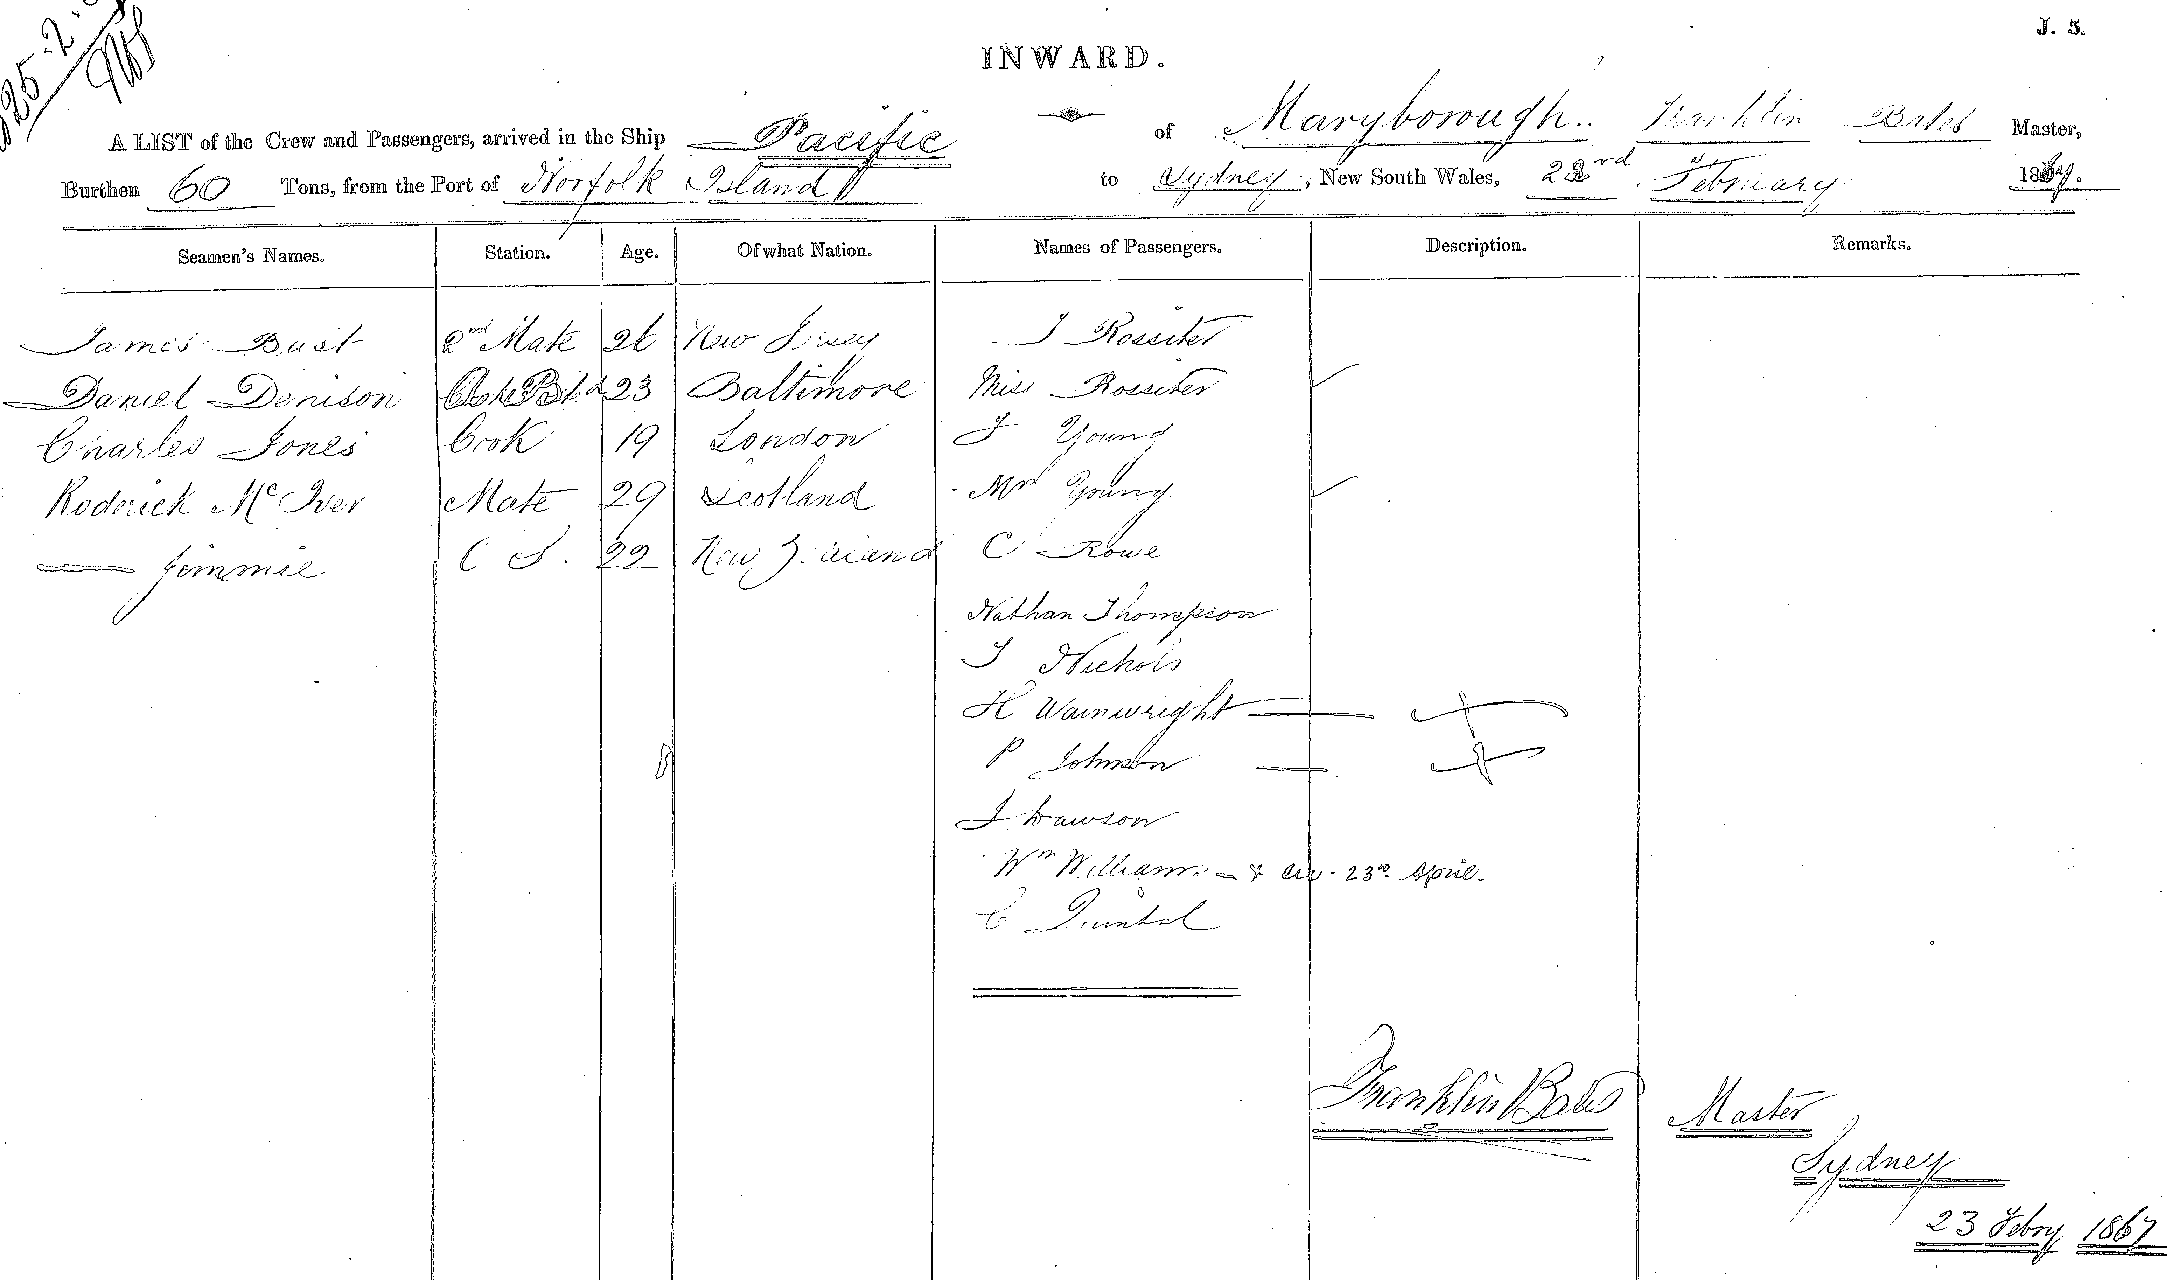 J. 5.
25-2-
INWARD.
A LIST of the Crew and Passengers, arrived in the Ship Pacific of Maryborough. Franklin Bates Master,
Burthen 60 Tons, from the Port of Norfolk Island to Sydney, New South Wales, 23rd February 1867.
Seamen's Names. Station. Age. Of what Nation. Names of Passengers. Description. Remarks.
James Bust 2nd Mate 26 New Jersey J Rossiter
Daniel Denison 23 Baltimore Miss Rossiter ✓
Charles Jones Cook 19 London J Young
Roderick McIver Mate 29 Scotland Mrs Young ✓
— Jimmie C S. 22 New Zealand C Rowe
Nathan Thompson
J Nichols
H Wainwright —
P Johnson —
J Dawson
Wm Williams — 23rd April.
C Quintal
Franklin Bates Master
Sydney
23 Febry 1867